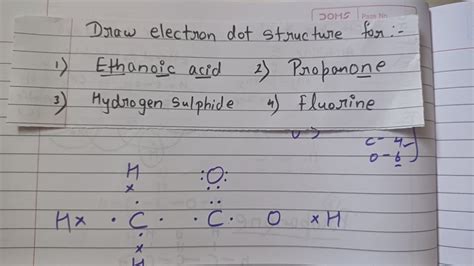 DOMS Page No.
Draw electron dot structure for:-
1) Ethanoic acid 2) Propanone
3) Hydrogen sulphide 4) fluorine
C - 4
O - 6
H
x
:O:
Hx · C · · C · O xH
x
H